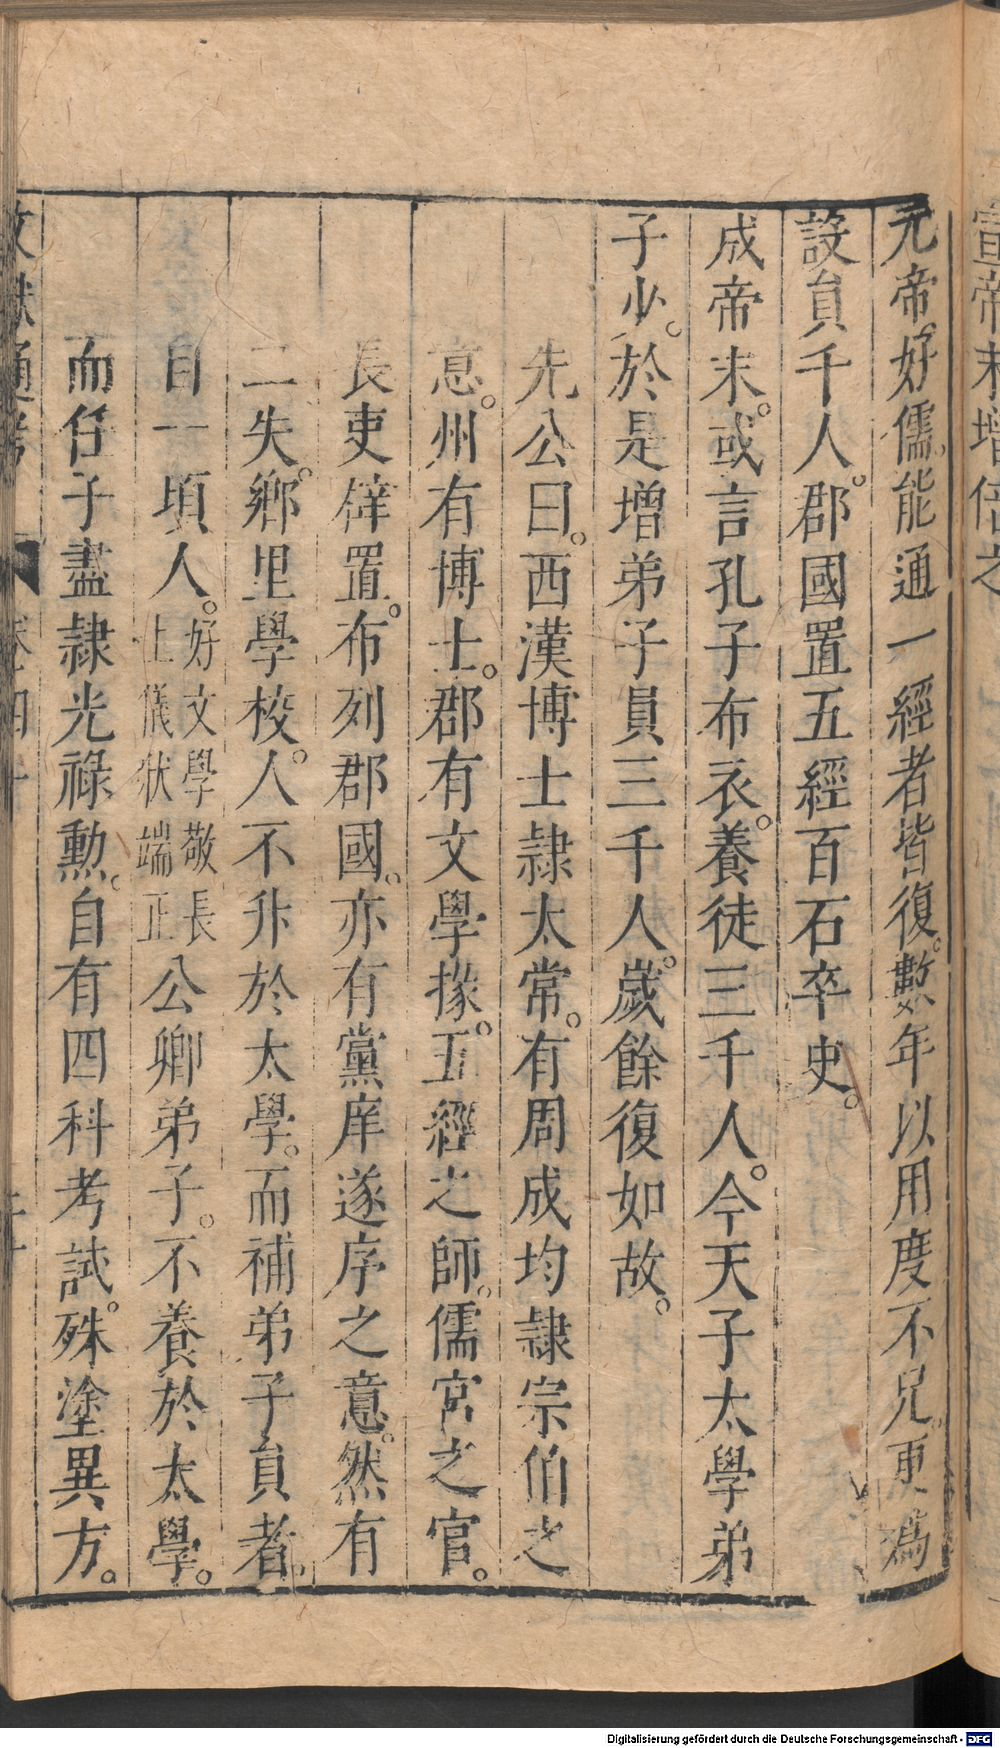 宣帝末增倍之
元帝好儒。能通一經者皆復。數年以用度不足。更為
設員千人。郡國置五經百石卒史。
成帝末。或言孔子布衣。養徒三千人。今天子太學弟
子少。於是增弟子員三千人。歲餘復如故。
先公曰。西漢博士隷太常。有周成均隷宗伯之
意。州有博士。郡有文學掾。五經之師。儒宮之官。
長吏辟置。布列郡國。亦有黨庠遂序之意。然有
二失。鄉里學校。人不升於太學。而補弟子員者。
自一項人。好文學敬長
上儀狀端正
公卿弟子。不養於太學。
而任子盡隷光祿勲。自有四科考試。殊塗異方。
文獻通考
卷四十
Digitalisierung gefördert durch die Deutsche Forschungsgemeinschaft - DFG